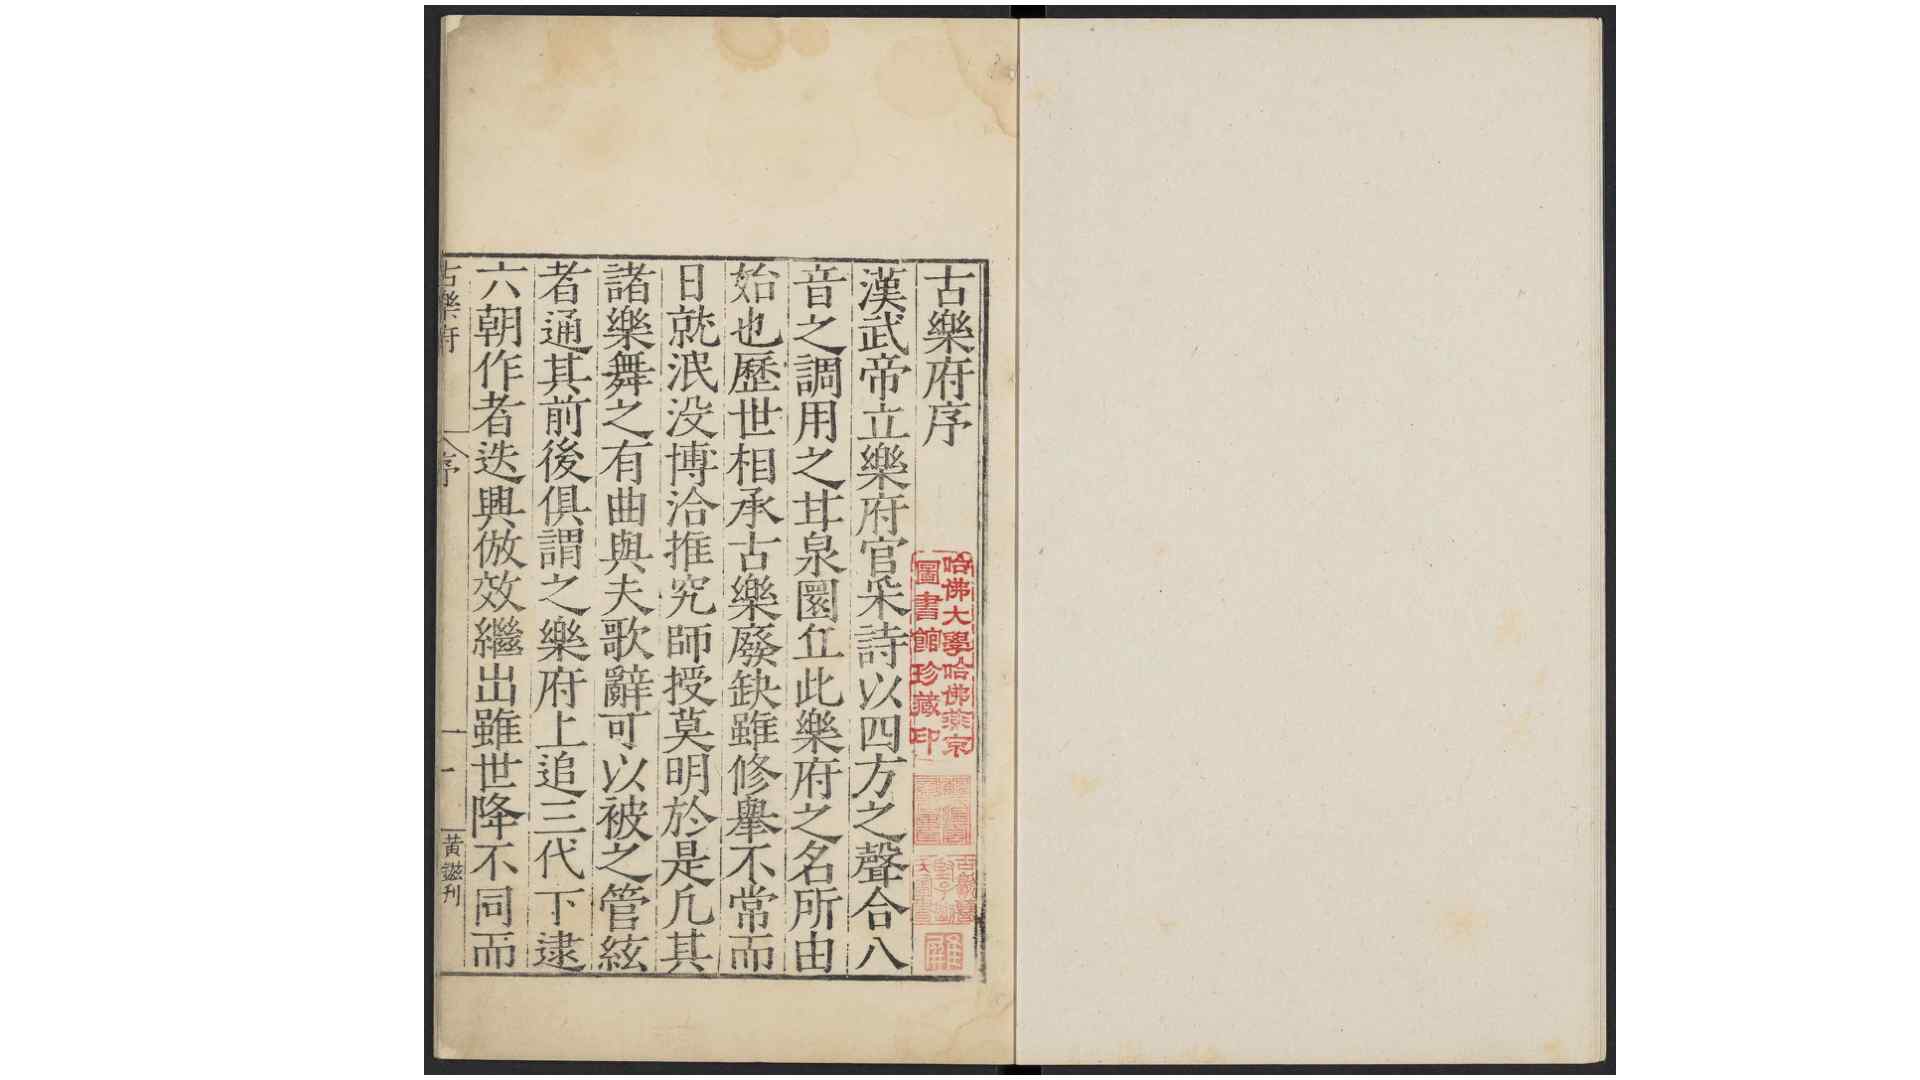 古樂府序
哈佛大學哈佛燕京
圖書館珍藏印
漢武帝立樂府官采詩以四方之聲合八
音之調用之甘泉圜丘此樂府之名所由
始也歷世相承古樂廢缺雖修舉不常而
日就泯没博洽推究師授莫明於是凢其
諸樂舞之有曲與夫歌辭可以被之管絃
者通其前後俱謂之樂府上追三代下逮
六朝作者迭興倣效繼出雖世降不同而
古樂府
序
一
黃鎡刊